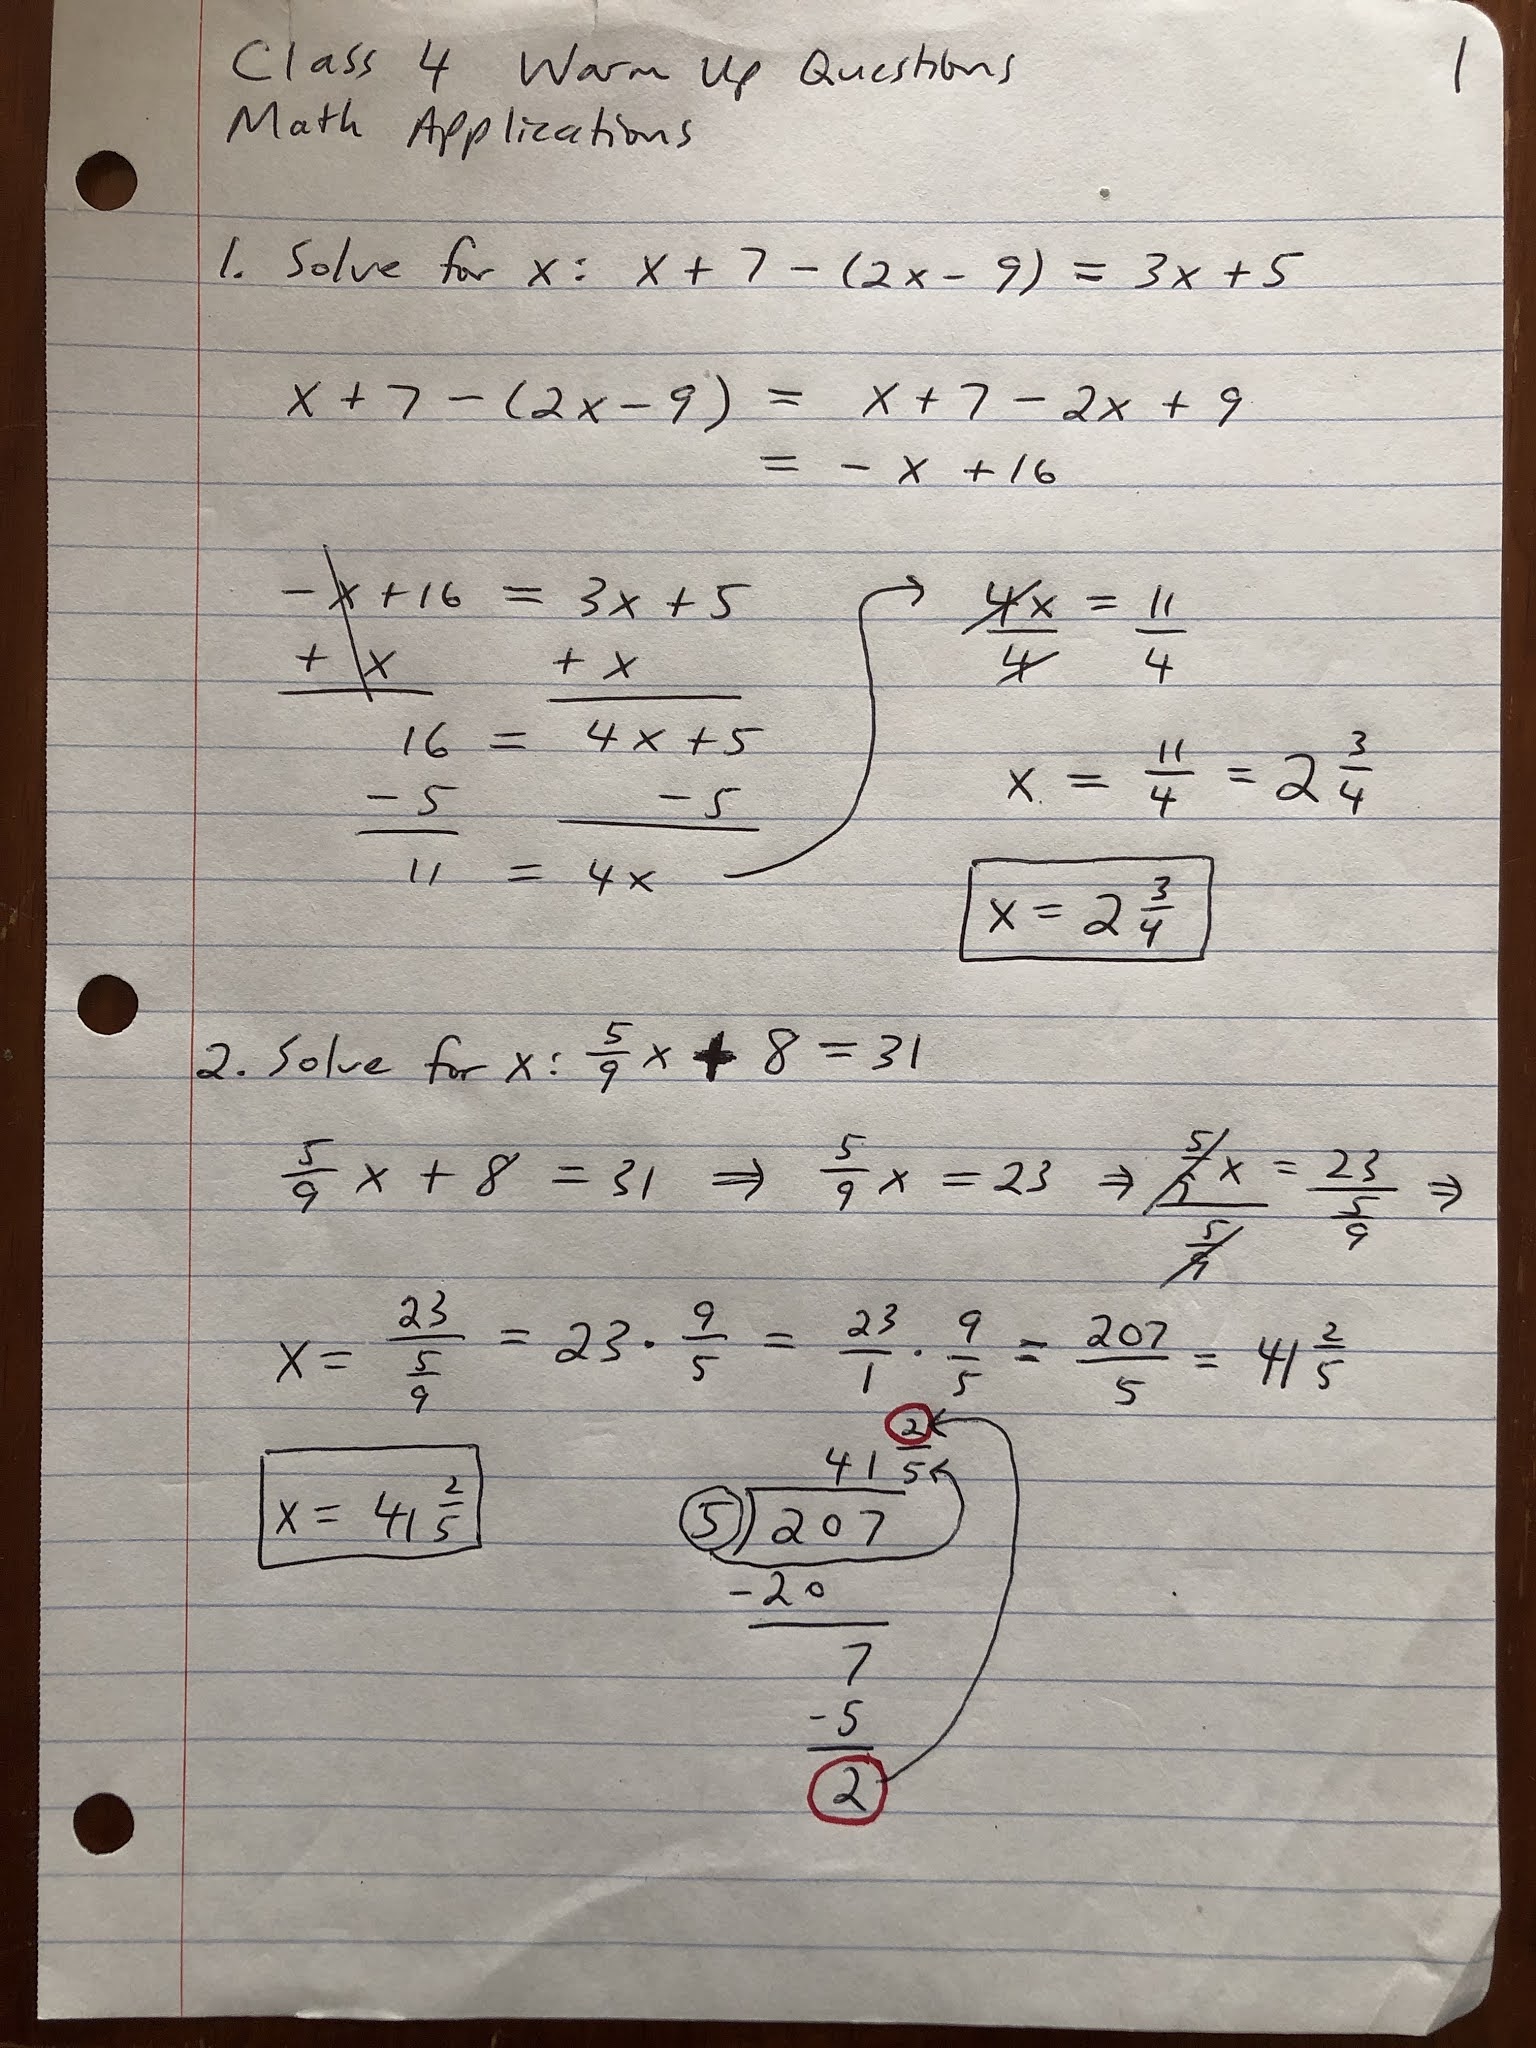 Class 4 Warm Up Questions
1
Math Applications
1. Solve for x: x + 7 - (2x - 9) = 3x + 5
x + 7 - (2x - 9) = x + 7 - 2x + 9
= - x + 16
-x + 16 = 3x + 5
+ x + x
16 = 4x + 5
- 5 - 5
11 = 4x
4x/4 = 11/4
x = 11/4 = 2 3/4
x = 2 3/4
2. Solve for x: 5/9 x + 8 = 31
5/9 x + 8 = 31 ⇒ 5/9 x = 23 ⇒ 5/9 x / 5/9 = 23 / 5/9 ⇒
x = 23 / 5/9 = 23 · 9/5 = 23/1 · 9/5 = 207/5 = 41 2/5
x = 41 2/5
41 2/5
5) 207
-20
7
-5
2